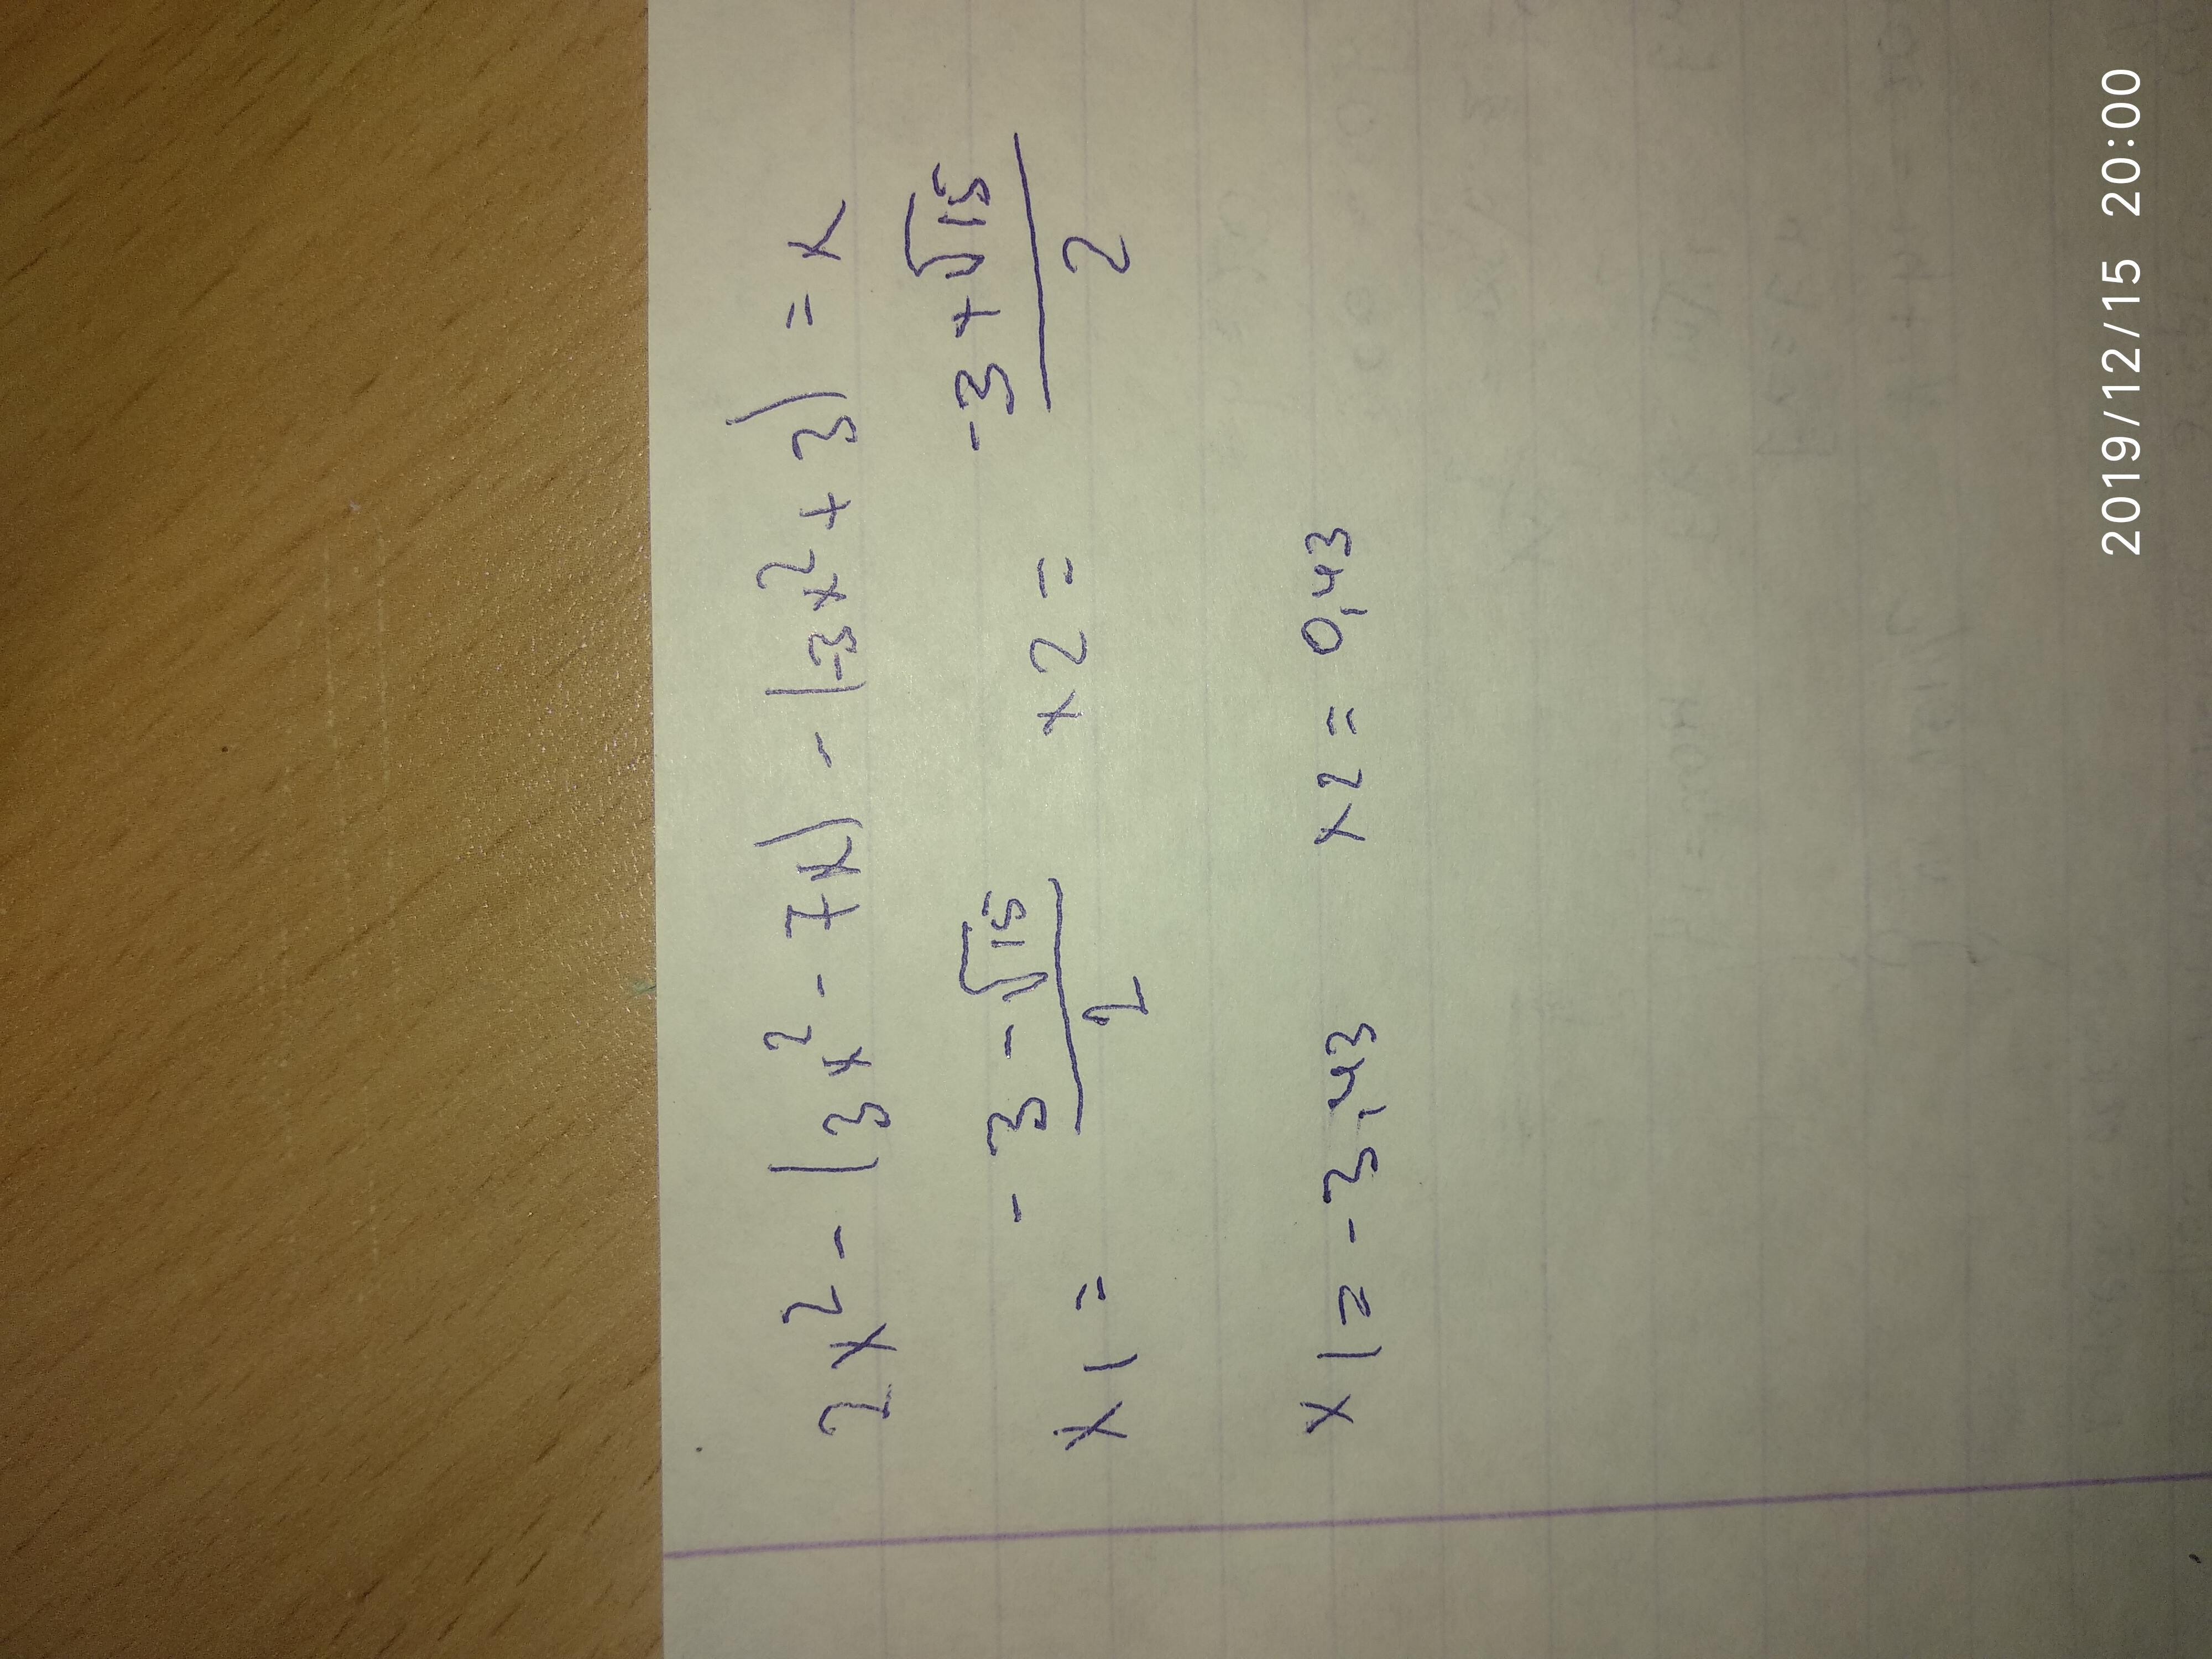 2x² - (3x² - 7x) - (-3x² + 3) = x
x1 = (-3 - √15)/2 x2 = (-3 + √15)/2
x1 = -3,43 x2 = 0,43
2019/12/15 20:00